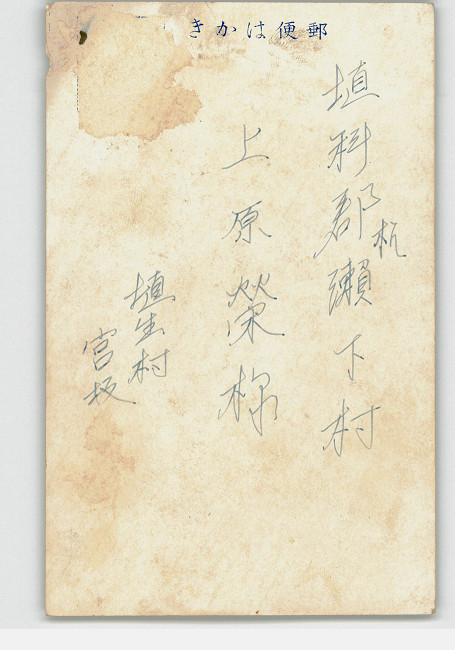 きかはは便郵
埴科郡杭瀬下村
上原榮様
埴生村
宮坂